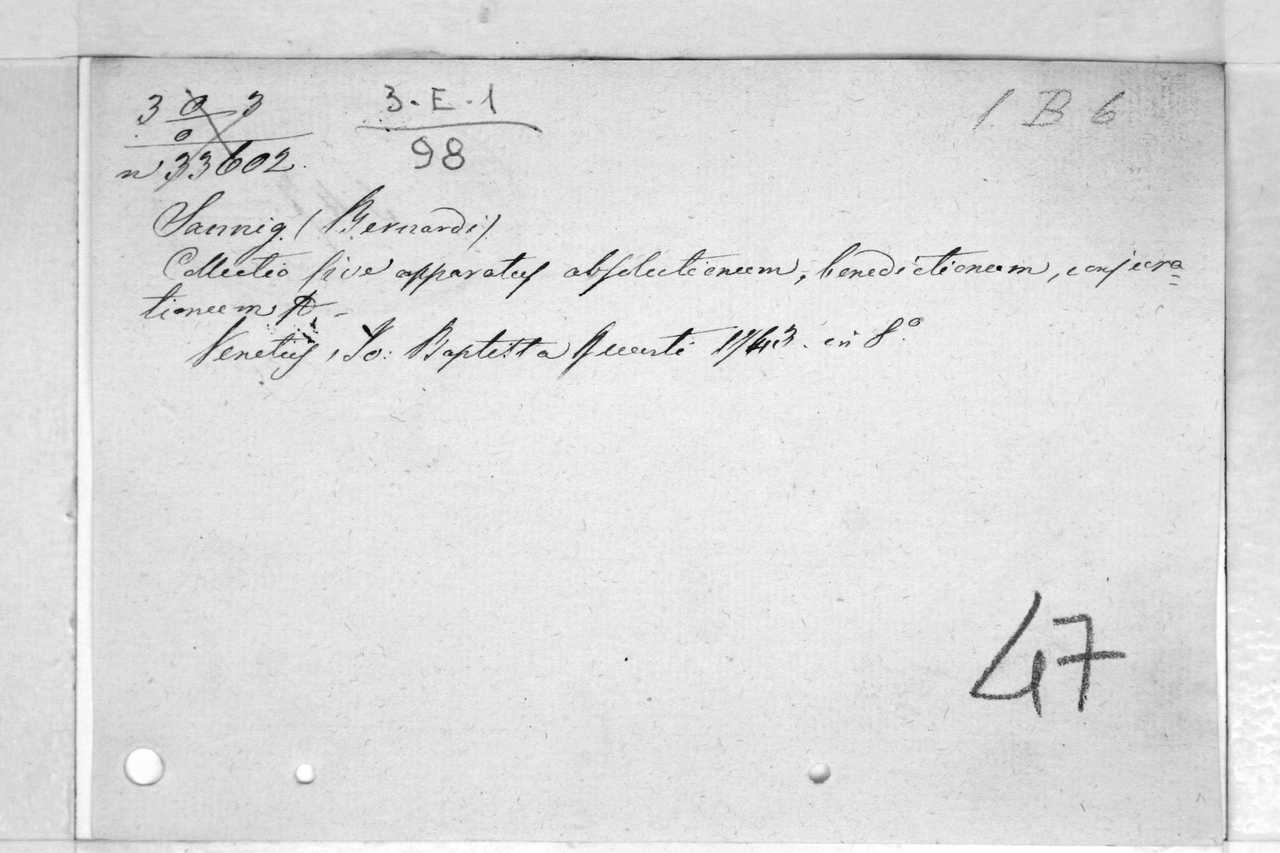 3 0 3
0
n 33602.
3-E-1
98
1 B 6
Sannig. (Bernardi)
Collectio sive apparatus absolutionum, benedictionum, conjura=
tionum &
Venetiis, Jo: Baptista 1743. in 8°
47